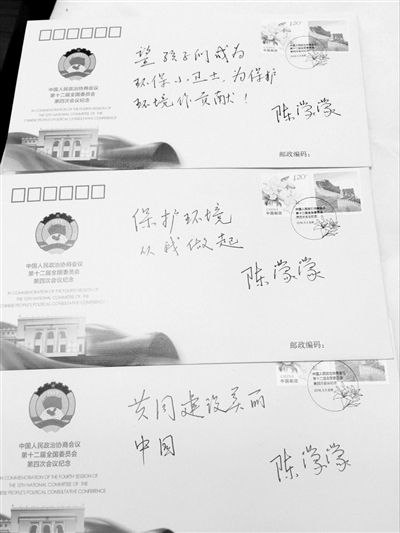 望孩子们成为
环保小卫士,为保护
环境作贡献!
陈濛濛
1.20元
中国邮政
中国人民政治协商会议
第十二届全国委员会
第四次会议纪念
IN COMMEMORATION OF THE FOURTH SESSION OF
THE 12TH NATIONAL COMMITTEE OF THE
CHINESE PEOPLE'S POLITICAL CONSULTATIVE CONFERENCE
邮政编码:
保护环境
从我做起
陈濛濛
1.20元
中国邮政
中国人民政治协商会议
第十二届全国委员会
第四次会议纪念
IN COMMEMORATION OF THE FOURTH SESSION OF
THE 12TH NATIONAL COMMITTEE OF THE
CHINESE PEOPLE'S POLITICAL CONSULTATIVE CONFERENCE
邮政编码:
共同建设美丽
中国
陈濛濛
中国邮政
中国人民政治协商会议
第十二届全国委员会
第四次会议纪念
IN COMMEMORATION OF THE FOURTH SESSION OF
THE 12TH NATIONAL COMMITTEE OF THE
CHINESE PEOPLE'S POLITICAL CONSULTATIVE CONFERENCE